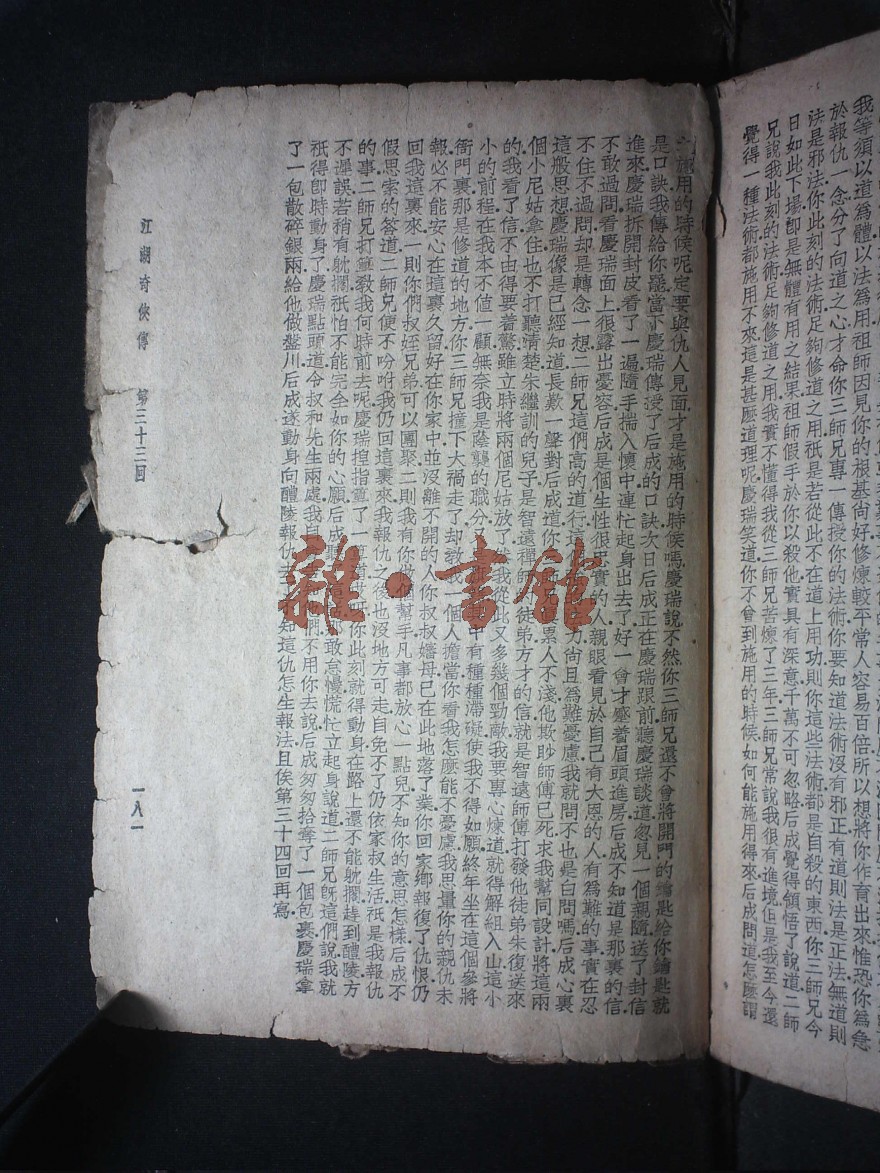 我等須以道為體以法為用祖師因見你的根基尙好修煉較平常人容易百倍所以想將你作育出來惟恐你為急
於報仇一念分了向道之心才命你三師兄專一傳授你的法術你要知道法術沒有邪正有道則法是正法無道則
法是邪法你此刻的法術足夠修道之用祇是若從此不在道上用功則你這些法術都是自殺的東西你三師兄今
日如此下塲卽是無體有用之結果祖師假手於你以殺他實具有深意千萬不可忽略后成覺得領悟了說道二師
兄說我此刻的法術足夠修道之用我實不懂得我從三師兄苦煉了三年三師兄常說我很有進境但是我至今還
覺得一種法術都施用不來這是甚麼道理呢慶瑞笑道你不曾到施用的時候如何能施用得來后成問道怎麽謂
施用的時候呢定要與仇人見面才是施用的時候嗎慶瑞說不然你三師兄還不曾將開門的鑰匙給你鑰匙就
是口訣我傳給你罷當下慶瑞傳授了后成的口訣次日后成正在慶瑞跟前聽慶瑞談道忽見一個親隨送了封信
進來慶瑞拆開封皮看了一遍隨手揣入懷中連忙起身出去了好一會才蹙着眉頭進房后成不知道是那裏的信
不敢過問看慶瑞面上很露出憂容后成是個生性很忠實的人親眼看見於自己有大恩的人有為難的事實在忍
不住不過問却是轉念一想二師兄這們高的道行這力尙且為難憂慮我就問不也是白問嗎后成心裏
這般思想慶瑞像是已經知道長歎一聲對后成道你票人不淺他欺眇師傅已死求我幫同設計將這兩
個小尼姑拿住也不打聽清楚朱繼訓的兒子是智遠禪師徒弟方才的信就是智遠師傅打發他徒弟朱復送來
的我看了信不由得要着驚雖立時將兩個尼姑放了我從此又多幾個勁敵我要專心煉道就得解組入山這小
小的前程在我本不值一顧無奈我是蔭襲的職分中有種種滯礙使我不得如願終年坐在這個參將
衙門裏那是修道的地方你三師兄撞下大禍走了却教我一個人擔當你看我怎麼能不憂慮我思量你的親仇未
報必不能安心在這裏久留好在你家中並沒離不開的人你叔叔嬸母已在此地落了業你回家鄉報復了仇恨仍
回我這裏來一則你們叔姪兄弟可以團聚二則我有你做個幫手凡事都放心一點兒不知你的意思怎樣后成不
假思索的答道二師兄便不吩咐我仍回這裏來我報仇之後也沒地方可走自免不了仍依家叔生活祇是我報仇
的事二師兄打算教我何時前去呢慶瑞掐指算了一道你此刻就得動身在路上還不能躭擱趕到醴陵方
不遲誤若稍有躭擱祇怕不能完全如你的心願后成敢怠慢慌忙立起身說道二師兄旣這們說我就
祇得卽時動身了慶瑞點頭道令叔和先生兩處我自們不用你去說后成匆匆拾奪了一個包裹慶瑞拿
了一包散碎銀兩給他做盤川后成遂動身向醴陵報仇去知這仇怎生報法且俟第三十四回再寫
江湖奇俠傳 第三十三回 一八一
雜·書館